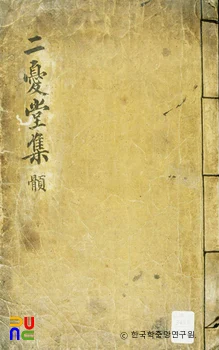 二憂堂集
© 한국학중앙연구원